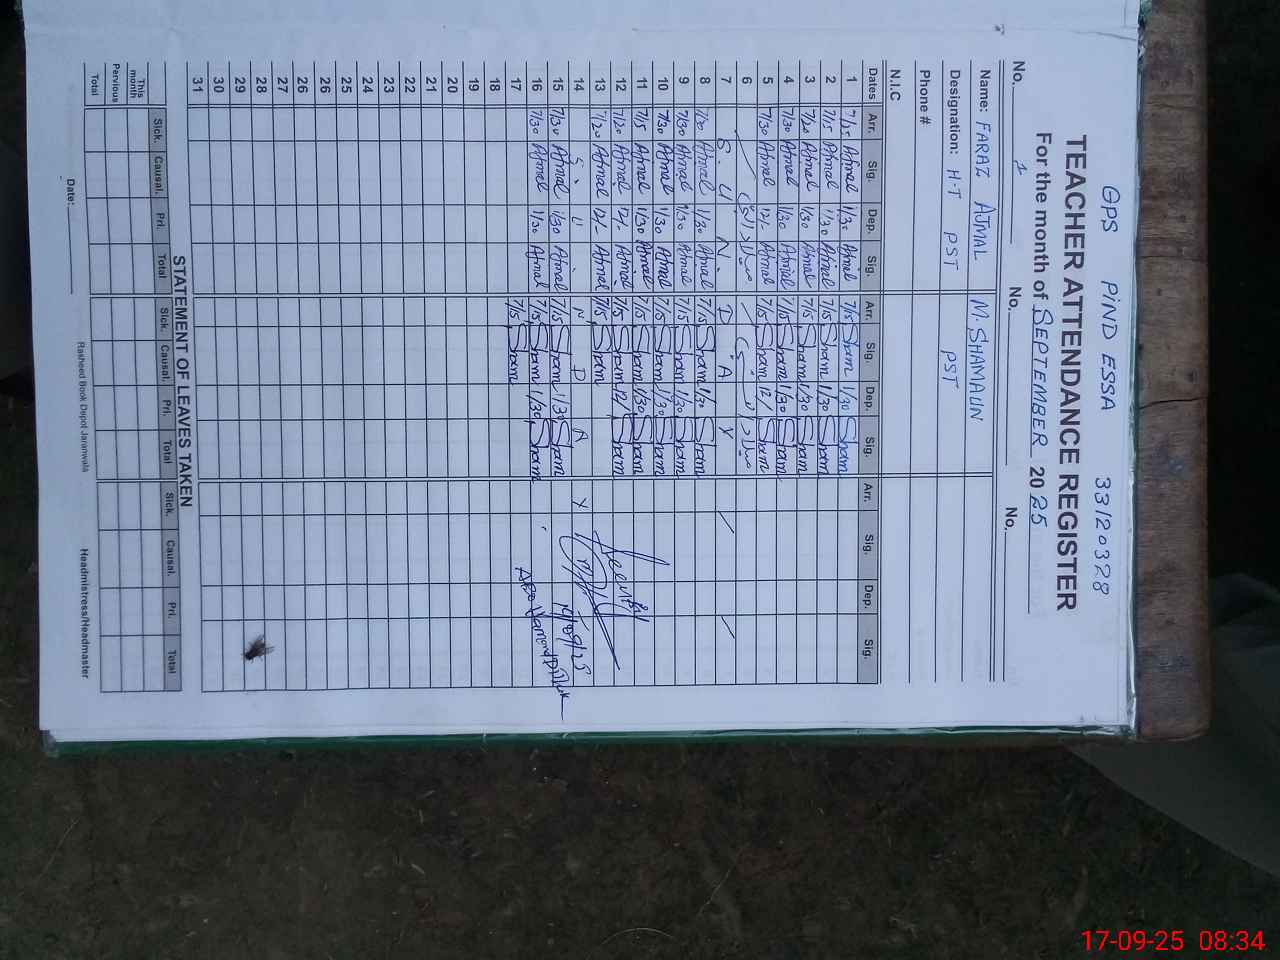 GPS PIND ESSA 33120328
TEACHER ATTENDANCE REGISTER
For the month of SEPTEMBER 2025
No. 1 No. No.
Name: FARAZ AJMAL M. SHAMAUN
Designation: H.T PST PST
Phone #
N.I.C
Dates Arr. Sig. Dep. Sig. Arr. Sig. Dep. Sig. Arr. Sig. Dep. Sig.
1 7/15 Ajmal 1/30 Ajmal 7/15 Sham 1/30 Sham
2 7/15 Ajmal 1/30 Ajmal 7/15 Sham 1/30 Sham
3 7/20 Ajmal 1/30 Ajmal 7/15 Sham 1/30 Sham
4 7/30 Ajmal 1/30 Ajmal 7/15 Sham 1/30 Sham
5 7/30 Ajmal 12/- Ajmal 7/15 Sham 12/ Sham
6
7 S. U N. D A Y
8 7/20 Ajmal 1/30 Ajmal 7/15 Sham 1/30 Sham
9 7/30 Ajmal 1/30 Ajmal 7/15 Sham 1/30 Sham
10 7/30 Ajmal 1/30 Ajmal 7/15 Sham 1/30 Sham
11 7/15 Ajmal 1/30 Ajmal 7/15 Sham 1/30 Sham
12 7/20 Ajmal 12/- Ajmal 7/15 Sham 12/ Sham
13 7/20 Ajmal 12/- Ajmal 7/15 Sham
14 S U N D A Y
15 7/30 Ajmal 1/30 Ajmal 7/15 Sham 1/30 Sham
16 7/30 Ajmal 1/30 Ajmal 7/15 Sham 1/30 Sham
17 7/15 Sham
18
19
20
21
22
23
24
25
26
26
27
28
29
30
31
STATEMENT OF LEAVES TAKEN
Sick. Causal. Pri. Total Sick. Causal. Pri. Total Sick. Causal. Pri. Total
This month
Pervious
Total
Date: Rasheed Book Depot Jaranwala Headmistress/Headmaster
17-09-25 08:34